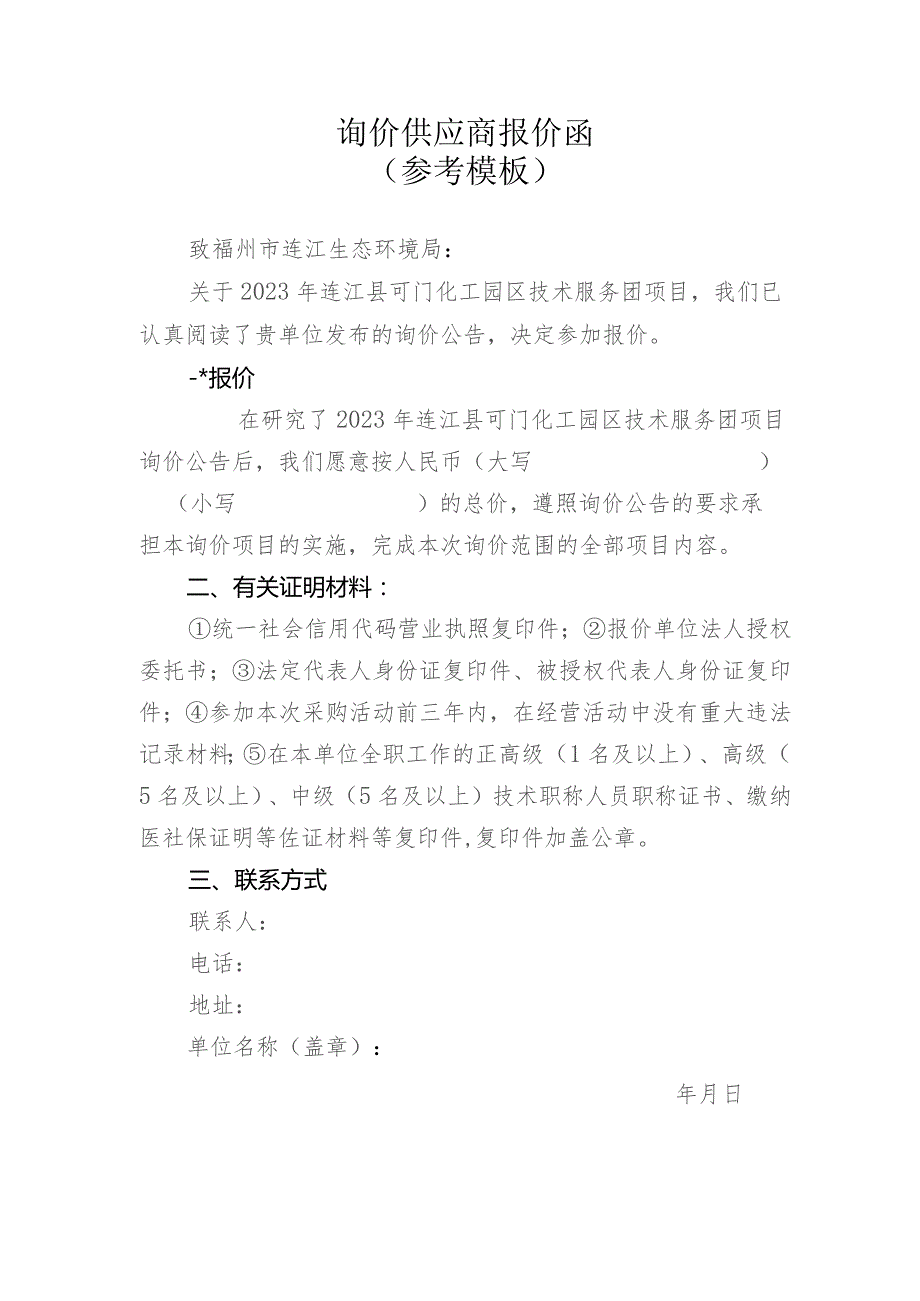 询价供应商报价函
（参考模板）
致福州市连江生态环境局：
关于 2023 年连江县可门化工园区技术服务团项目，我们已
认真阅读了贵单位发布的询价公告，决定参加报价。
-*报价
在研究了 2023 年连江县可门化工园区技术服务团项目
询价公告后，我们愿意按人民币（大写 ）
（小写 ）的总价，遵照询价公告的要求承
担本询价项目的实施，完成本次询价范围的全部项目内容。
二、有关证明材料：
①统一社会信用代码营业执照复印件；②报价单位法人授权
委托书；③法定代表人身份证复印件、被授权代表人身份证复印
件；④参加本次采购活动前三年内，在经营活动中没有重大违法
记录材料；⑤在本单位全职工作的正高级（1 名及以上）、高级（
5 名及以上）、中级（5 名及以上）技术职称人员职称证书、缴纳
医社保证明等佐证材料等复印件,复印件加盖公章。
三、联系方式
联系人：
电话：
地址：
单位名称（盖章）：
年月日